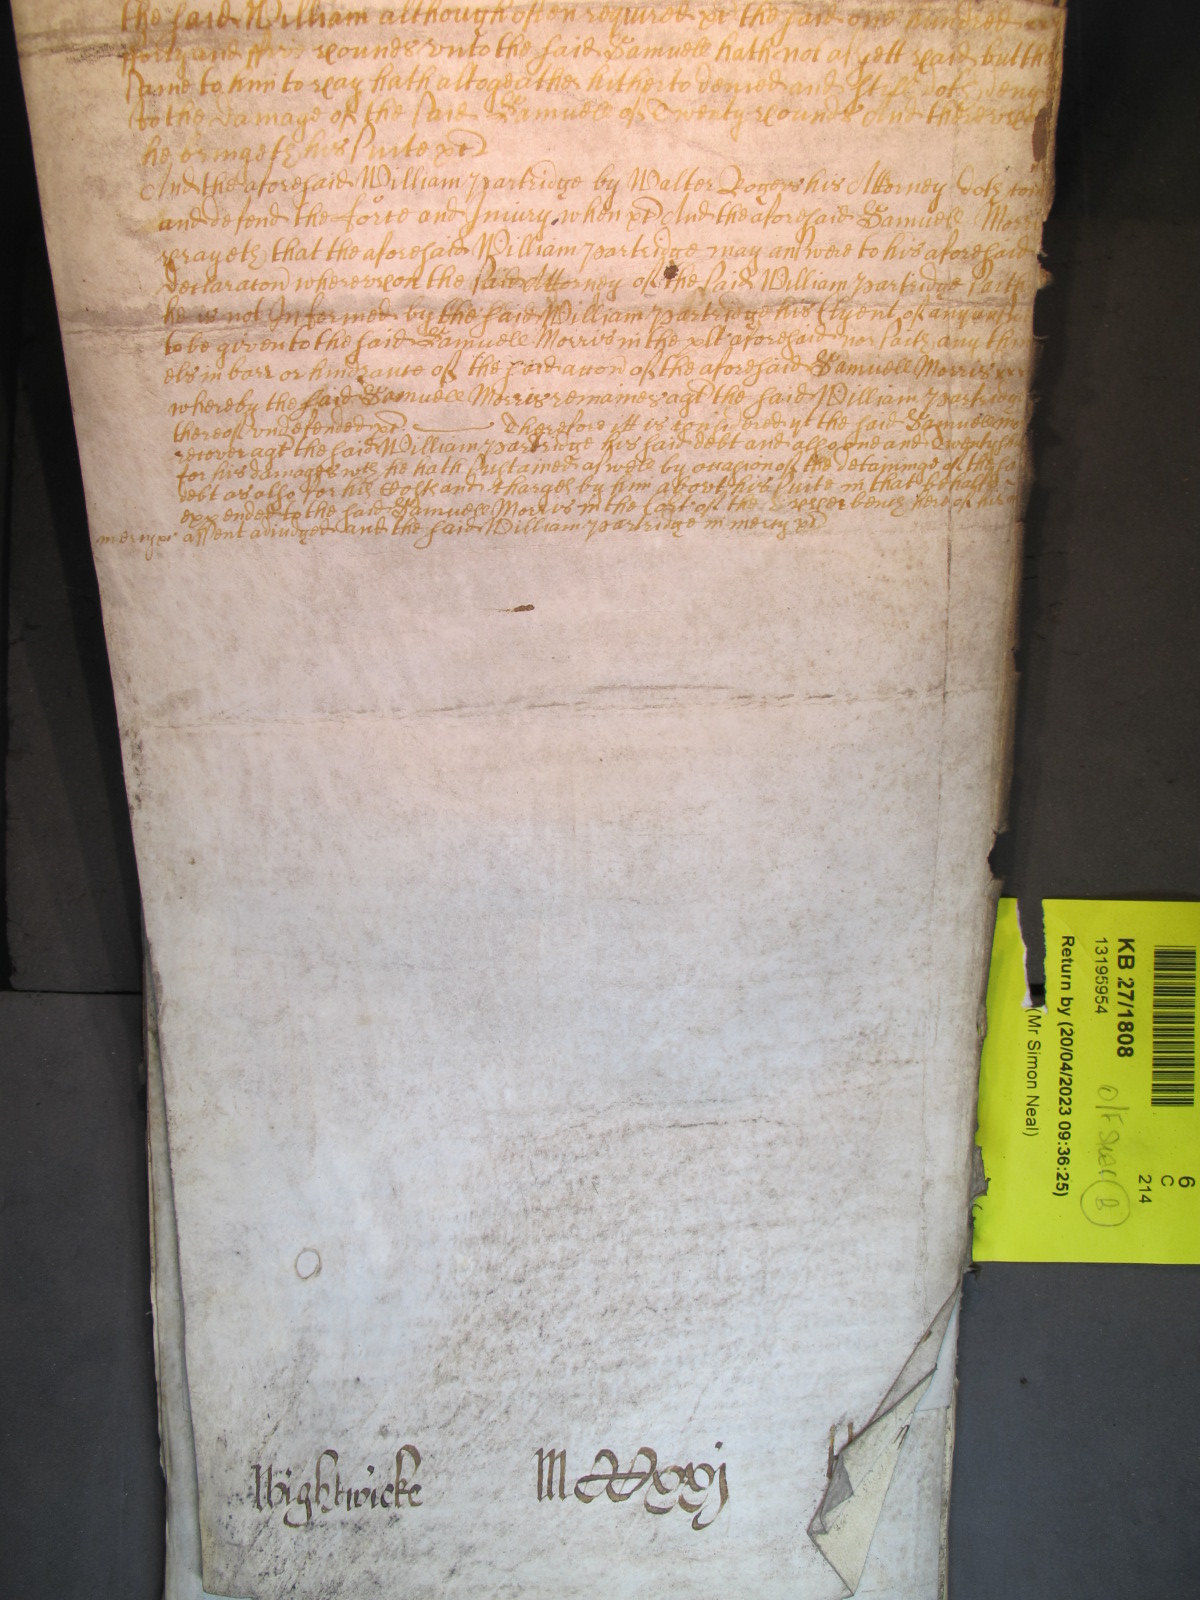 the said William although often required &c the said one hundred
forty and ffive pounds unto the said Samuell hath not as yett paid but the
same to him to pay hath altogeather hitherto denied and still doth
to the damage of the said Samuell of Twenty pounds And thereupon
he bringeth his suite &c
And the aforesaid William Partridge by Walter Rogers his Attorney doth
and defend the force and Iniury when &c And the aforesaid Samuell Morris
prayeth that the aforesaid William Partridge may answere to his aforesaid
declaracon whereupon the said Attorney of the said William Partridge saith
he is not Informed by the said William Partridge his Clyent of any
to be given to the said Samuell Morris in the plt aforesaid nor saith any thing
els in barr or hindrance of the said accon of the aforesaid Samuell Morris
whereby the said Samuell Morris remaines agt the said William Partridge
thereof undefended &c Therefore itt is considered yt the said Samuell
recover agt the said William Partridge his said debt and allso one and Twenty
for his damages wch he hath sustained as well by occasion of the detaininge of the
debt as also for his Costs and charges by him about his suite in that behalfe
expended to the said Samuell Morris in the Cort of the Upper bench here of his
mercy &c assent adiudged and the said William Partridge in mercy &c
Wightwicke
KB 27/1808
13195954
Return by (20/04/2023 09:36:25)
(Mr Simon Neal)
6
C
214